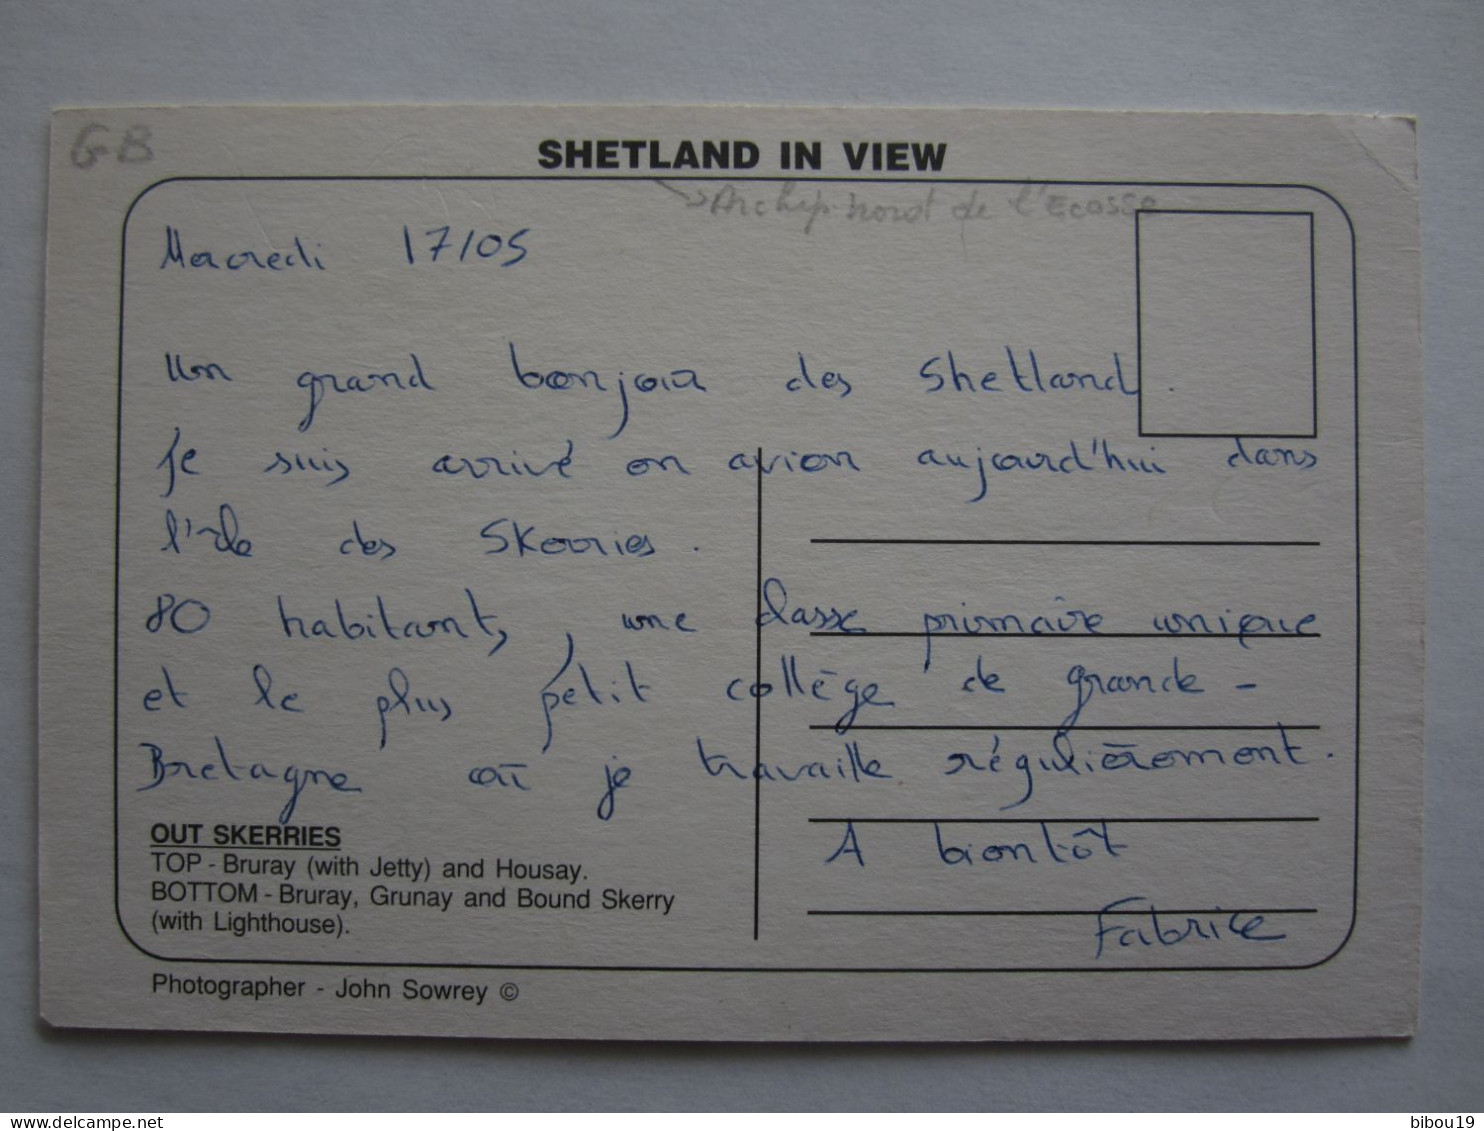 GB
SHETLAND IN VIEW
→ Archip. nord de l'Ecosse
Mercredi 17/05
Un grand bonjour des Shetland.
Je suis arrivé en avion aujourd'hui dans
l'île des Skerries.
80 habitants, une classe primaire unique
et le plus petit collège de grande-
Bretagne où je travaille régulièrement.
A bientôt
Fabrice
OUT SKERRIES
TOP - Bruray (with Jetty) and Housay.
BOTTOM - Bruray, Grunay and Bound Skerry
(with Lighthouse).
Photographer - John Sowrey ©
www.delcampe.net
bibou19